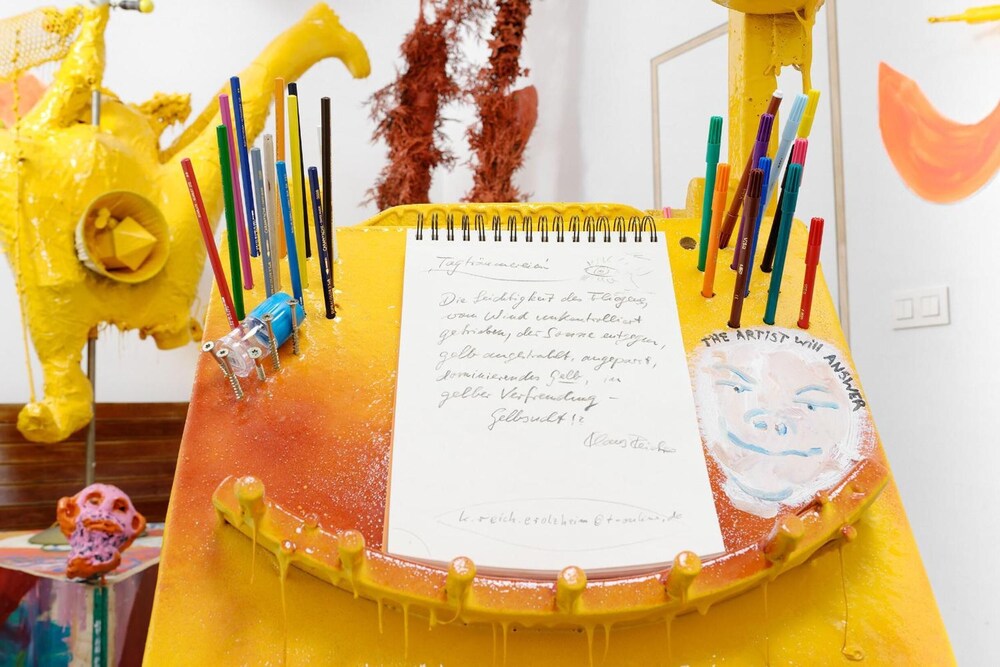 Tagträumereien
Die Leichtigkeit des Fliegens,
vom Wind unkontrolliert
getrieben, der Sonne entgegen,
gelb angestrahlt, angepasst,
dominierendes Gelb, in
gelber Verfremdung –
Gelbsucht!?
Klaus
THE ARTIST will ANSWER